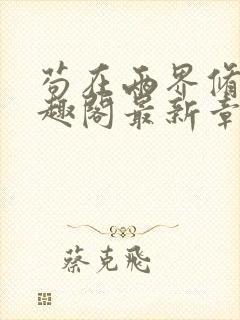 苟在两界修
趣阁最新章
蔡克飛